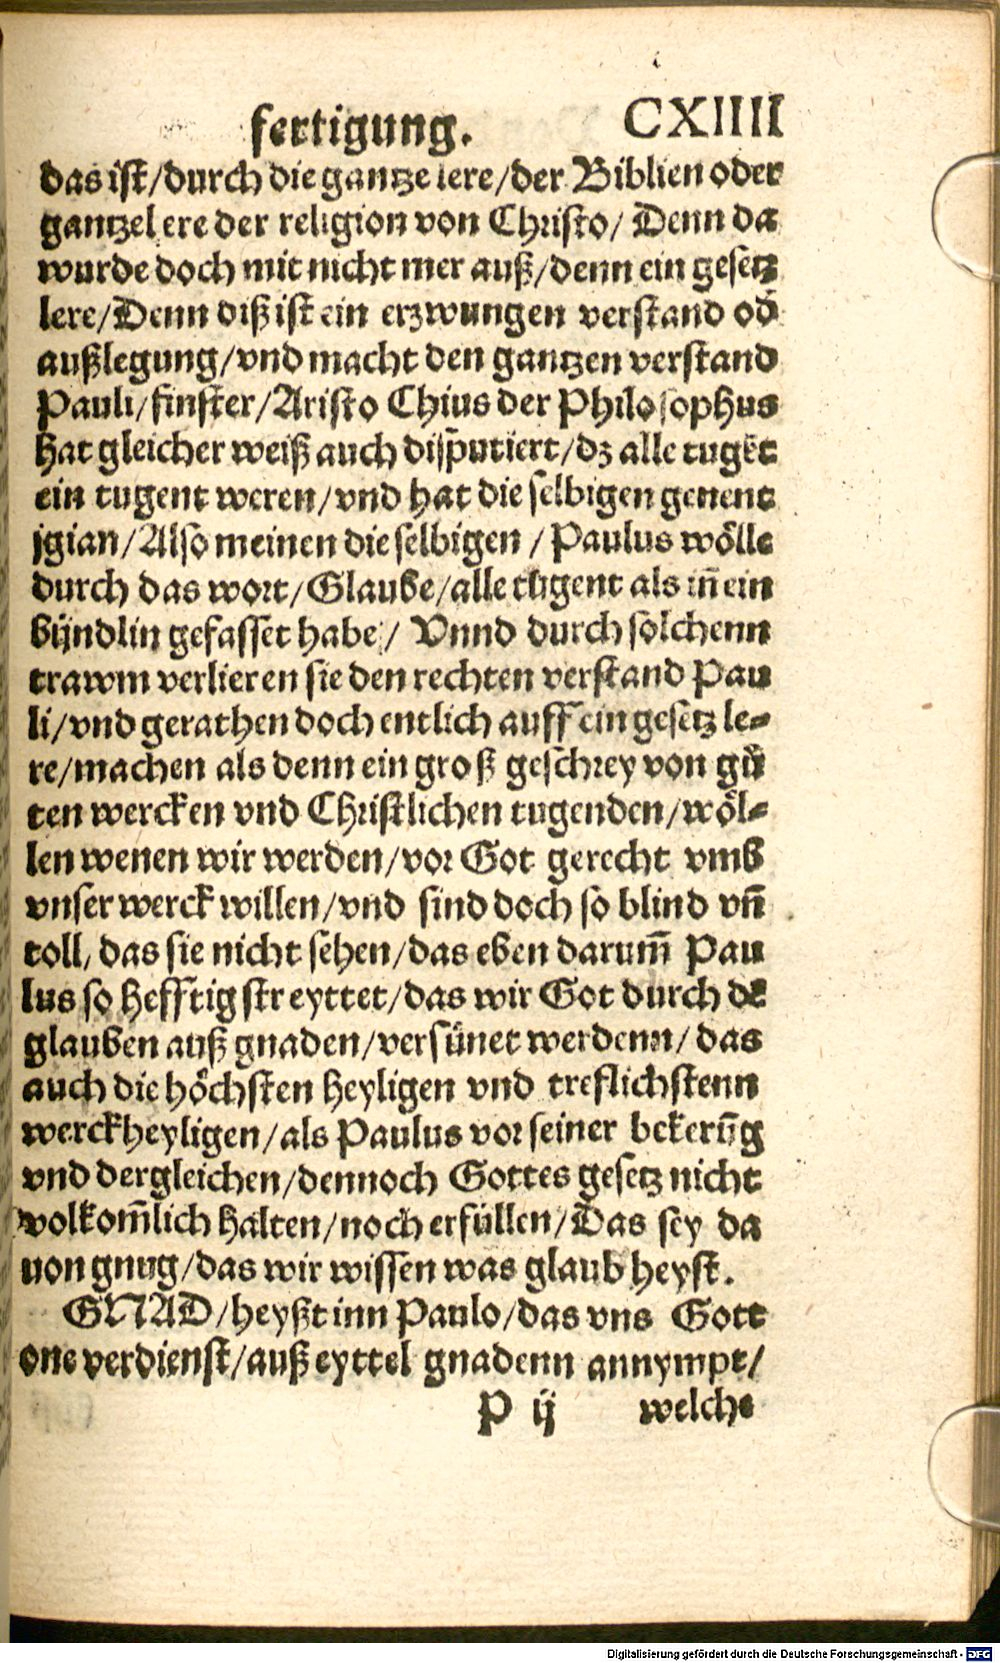 fertigung. CXIIII
das ist/durch die gantze lere/der Biblien oder
gantzel ere der religion von Christo/ Denn da
wurde doch mit nicht mer auß/denn ein gesetz
lere/Denn diß ist ein erzwungen verstand od̄
außlegung/vnd macht den gantzen verstand
Pauli/finster/Aristo Chius der Philosophus
hat gleicher weiß auch disputiert/dz alle tugēt
ein tugent weren/vnd hat die selbigen genent
jgian/Also meinen die selbigen/Paulus wölle
durch das wort/Glaube/alle tugent als in̄ ein
bündlin gefasset habe/ Vnnd durch solchenn
trawm verlieren sie den rechten verstand Pau
li/vnd gerathen doch entlich auff ein gesetz le-
re/machen als denn ein groß geschrey von gů
ten wercken vnd Christlichen tugenden/wöl-
len wenen wir werden/vor Got gerecht vmb
vnser werck willen/vnd sind doch so blind vn̄
toll, das sie nicht sehen/das eben darum̄ Pau
lus so hefftig streyttet/das wir Got durch dē
glauben auß gnaden/versünet werdenn/das
auch die höchsten heyligen vnd treflichstenn
werckheyligen/als Paulus vor seiner bekerūg
vnd dergleichen/dennoch Gottes gesetz nicht
volkom̄lich halten/noch erfüllen/Das sey da
uon gnug/das wir wissen was glaub heyst.
GNAD/heyßt inn Paulo/das vns Gott
one verdienst/auß eyttel gnadenn annympt/
P ij welche
Digitalisierung gefördert durch die Deutsche Forschungsgemeinschaft - DFG